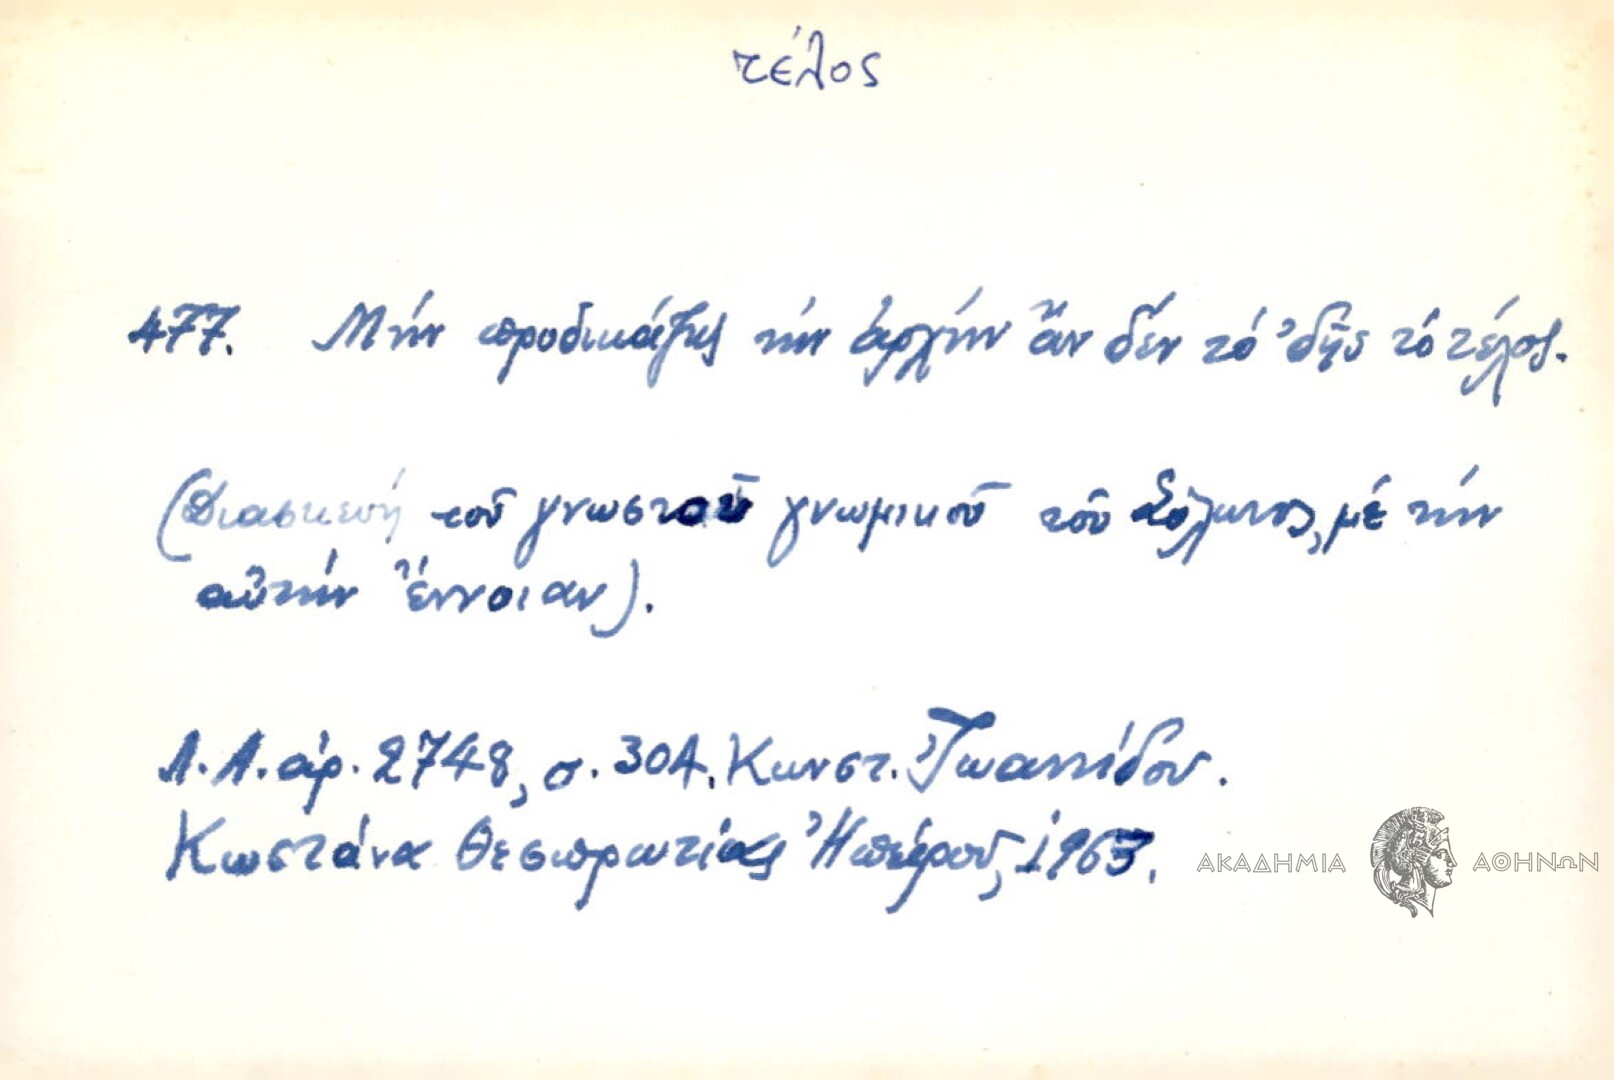 τέλος
477. Μήν προδικάζης τήν ἀρχήν ἄν δέν τό 'δῆς τό τέλος.
(Διασκευή τοῦ γνωστοῦ γνωμικοῦ τοῦ Σόλωνος, μέ τήν
αὐτήν ἔννοιαν).
Λ.Α. ἀρ. 2748, σ. 304, Κωνστ. Ἰωαννίδου.
Κωστάνα Θεσπρωτίας Ἠπείρου, 1963.
ΑΚΑΔΗΜΙΑ ΑΘΗΝΩΝ